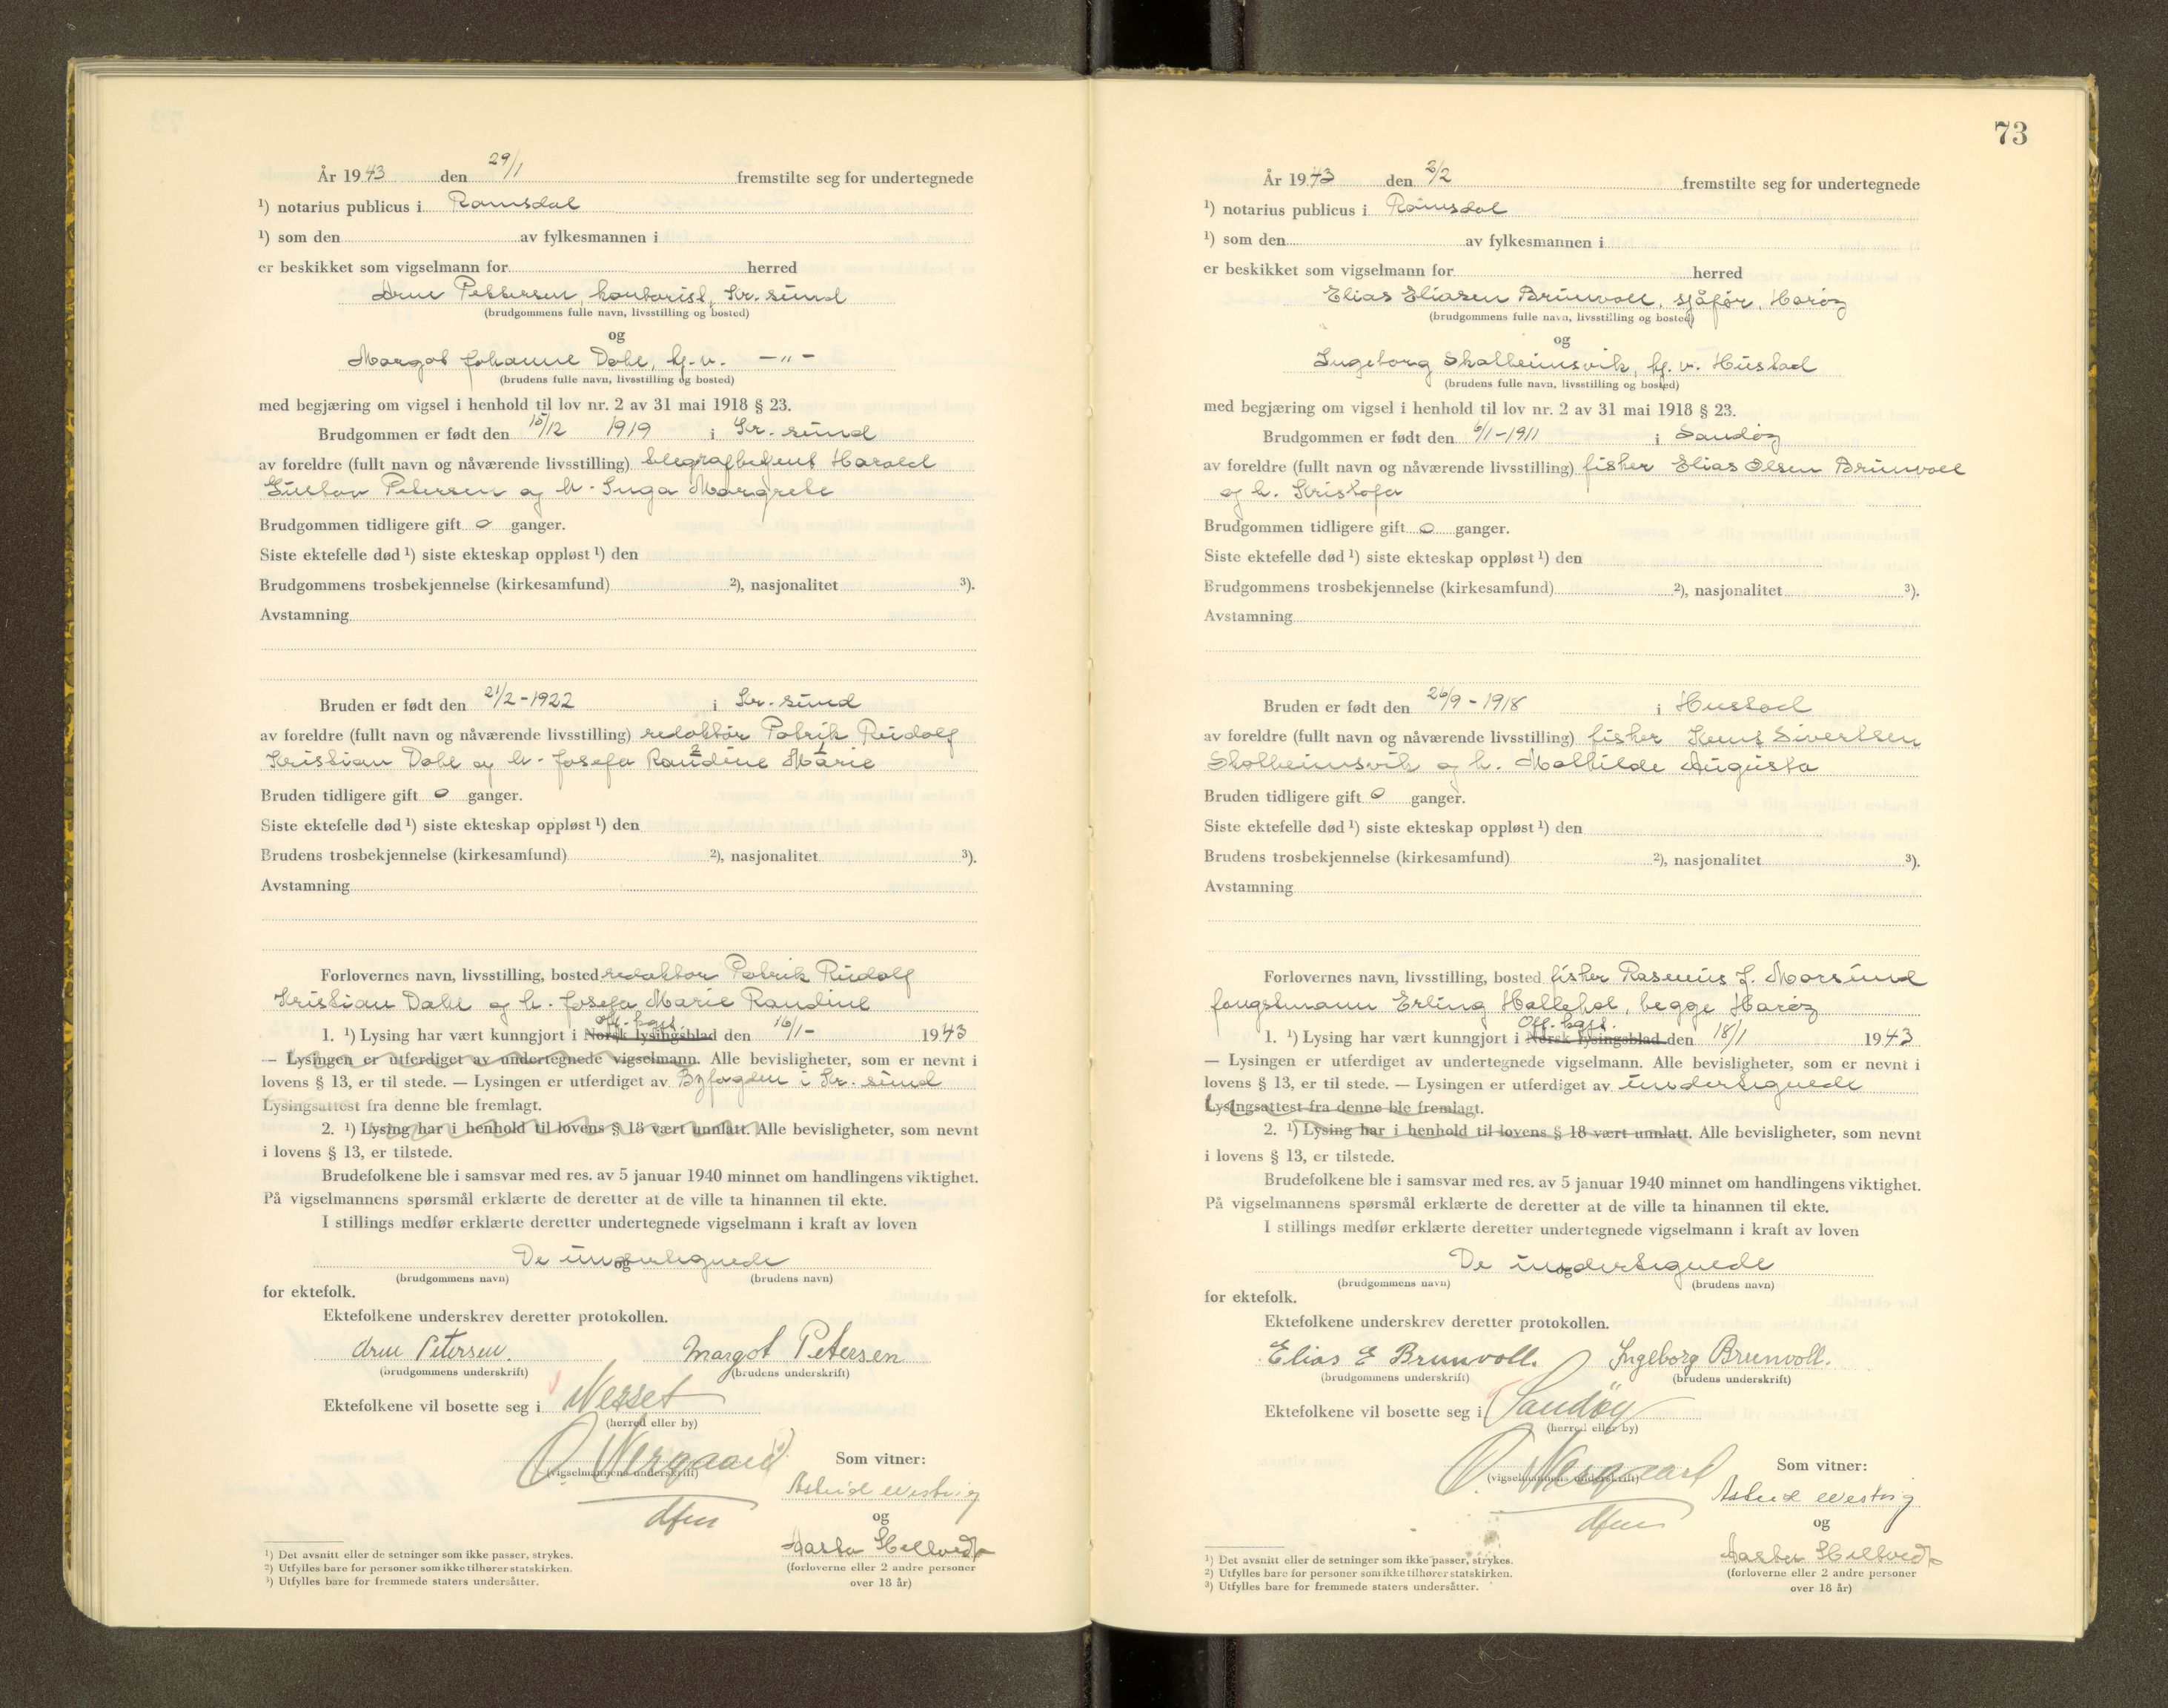 År 1943 den 29/1 fremstilte seg for undertegnede
¹) notarius publicus i Romsdal
¹) som den av fylkesmannen i
er beskikket som vigselmann for herred
Arne Pettersen, kontorist, Kr. sund
(brudgommens fulle navn, livsstilling og bosted)
og
Margot Johanne Dahl, hj. v. —"—
(brudens fulle navn, livsstilling og bosted)
med begjæring om vigsel i henhold til lov nr. 2 av 31 mai 1918 § 23.
Brudgommen er født den /12 1919 i Kr. sund
av foreldre (fullt navn og nåværende livsstilling) telegrafbetjent Harald
Gustav Petersen og h. Inga Margrete
Brudgommen tidligere gift 0 ganger.
Siste ektefelle død ¹) siste ekteskap oppløst ¹) den
Brudgommens trosbekjennelse (kirkesamfund) ²), nasjonalitet ³).
Avstamning
Bruden er født den 21/2 - 1922 i Kr. sund
av foreldre (fullt navn og nåværende livsstilling) redaktør Patrik Rudolf
Kristian Dahl og h. Josefa Randine Marie
Bruden tidligere gift 0 ganger.
Siste ektefelle død ¹) siste ekteskap oppløst ¹) den
Brudens trosbekjennelse (kirkesamfund) ²), nasjonalitet ³).
Avstamning
Forlovernes navn, livsstilling, bosted redaktør Patrik Rudolf
Kristian Dahl og h. Josefa Marie Randine
Off. kgjl.
1. ¹) Lysing har vært kunngjort i Norsk lysingsblad den 16/1 - 1943
— Lysingen er utferdiget av undertegnede vigselmann. Alle bevisligheter, som er nevnt i
lovens § 13, er til stede. — Lysingen er utferdiget av Byfogden i Kr. sund
Lysingsattest fra denne ble fremlagt.
2. ¹) Lysing har i henhold til lovens § 18 vært unnlatt. Alle bevisligheter, som nevnt
i lovens § 13, er tilstede.
Brudefolkene ble i samsvar med res. av 5 januar 1940 minnet om handlingens viktighet.
På vigselmannens spørsmål erklærte de deretter at de ville ta hinannen til ekte.
I stillings medfør erklærte deretter undertegnede vigselmann i kraft av loven
De undertegnede
og
(brudgommens navn) (brudens navn)
for ektefolk.
Ektefolkene underskrev deretter protokollen.
Arne Petersen. Margot Petersen
(brudgommens underskrift) (brudens underskrift)
Ektefolkene vil bosette seg i Nesset
(herred eller by)
O. Nergaard
(vigselmannens underskrift)
dfm
Som vitner:
Astrid Westvig
og
Aasta Hellvedt
(forloverne eller 2 andre personer
over 18 år)
¹) Det avsnitt eller de setninger som ikke passer, strykes.
²) Utfylles bare for personer som ikke tilhører statskirken.
³) Utfylles bare for fremmede staters undersåtter.
73
År 1943 den 2/2 fremstilte seg for undertegnede
¹) notarius publicus i Romsdal
¹) som den av fylkesmannen i
er beskikket som vigselmann for herred
Elias Eliasen Brunvoll, sjåfør, Harøy
(brudgommens fulle navn, livsstilling og bosted)
og
Ingeborg Skalheimsvik, hj. v. Hustad
(brudens fulle navn, livsstilling og bosted)
med begjæring om vigsel i henhold til lov nr. 2 av 31 mai 1918 § 23.
Brudgommen er født den 6/1 - 1911 i Sandøy
av foreldre (fullt navn og nåværende livsstilling) fisker Elias Olsen Brunvoll
og h. Kristofa
Brudgommen tidligere gift 0 ganger.
Siste ektefelle død ¹) siste ekteskap oppløst ¹) den
Brudgommens trosbekjennelse (kirkesamfund) ²), nasjonalitet ³).
Avstamning
Bruden er født den 26/9 - 1918 i Hustad
av foreldre (fullt navn og nåværende livsstilling) fisker Knut Sivertsen
Skalheimsvik og h. Mathilde Augusta
Bruden tidligere gift 0 ganger.
Siste ektefelle død ¹) siste ekteskap oppløst ¹) den
Brudens trosbekjennelse (kirkesamfund) ²), nasjonalitet ³).
Avstamning
Forlovernes navn, livsstilling, bosted fisker Rasmus J. Morsund
fangstmann Erling Hallehol, begge Harøy
Off. kgjl.
1. ¹) Lysing har vært kunngjort i Norsk lysingsblad den 18/1 1943
— Lysingen er utferdiget av undertegnede vigselmann. Alle bevisligheter, som er nevnt i
lovens § 13, er til stede. — Lysingen er utferdiget av undertegnede
Lysingsattest fra denne ble fremlagt.
2. ¹) Lysing har i henhold til lovens § 18 vært unnlatt. Alle bevisligheter, som nevnt
i lovens § 13, er tilstede.
Brudefolkene ble i samsvar med res. av 5 januar 1940 minnet om handlingens viktighet.
På vigselmannens spørsmål erklærte de deretter at de ville ta hinannen til ekte.
I stillings medfør erklærte deretter undertegnede vigselmann i kraft av loven
De undertegnede
og
(brudgommens navn) (brudens navn)
for ektefolk.
Ektefolkene underskrev deretter protokollen.
Elias E Brunvoll. Ingeborg Brunvoll.
(brudgommens underskrift) (brudens underskrift)
Ektefolkene vil bosette seg i Sandøy
(herred eller by)
O. Nergaard
(vigselmannens underskrift)
dfm
Som vitner:
Astrid Westvig
og
Aasta Hellvedt
(forloverne eller 2 andre personer
over 18 år)
¹) Det avsnitt eller de setninger som ikke passer, strykes.
²) Utfylles bare for personer som ikke tilhører statskirken.
³) Utfylles bare for fremmede staters undersåtter.